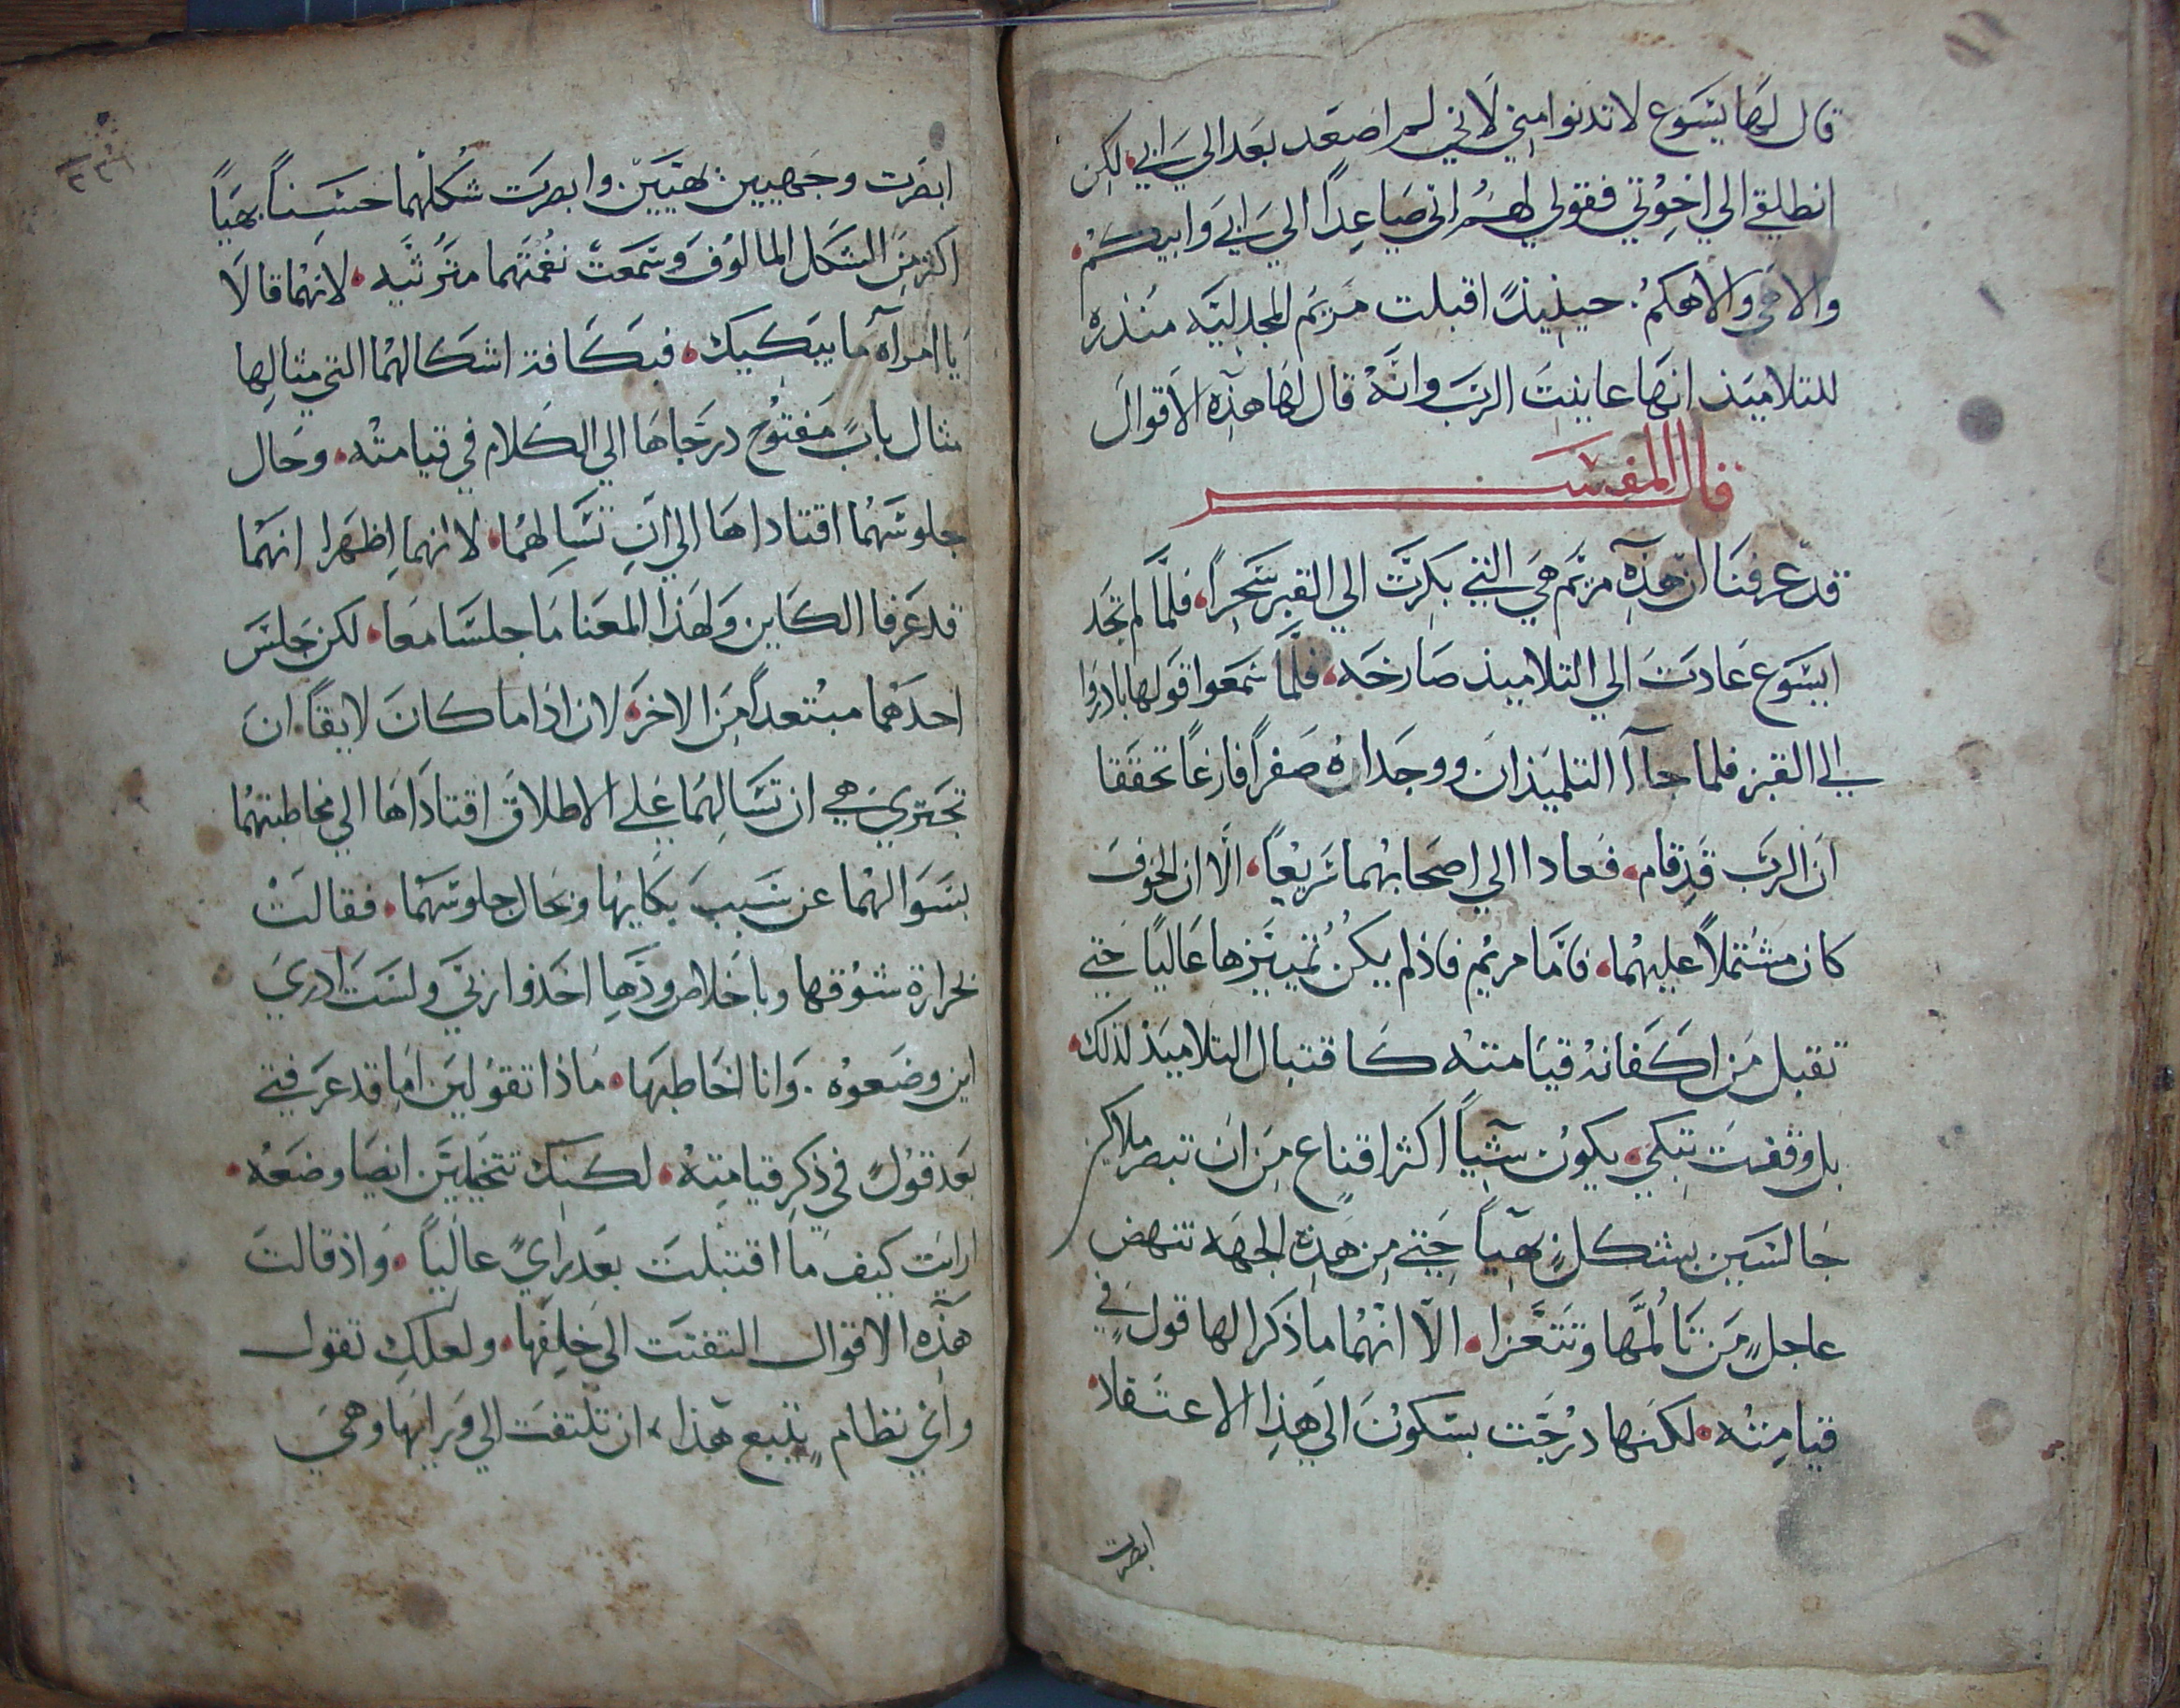 قال لها يسوع لا تدنوا مني لاني لم اصعد بعد الي ابي لكن
انطلقي الي اخوتي فقولي لهم اني صاعدا الي ابي وابيكم
والاهي والاهكم. حينيذ اقبلت مريم المجدليه منذره
للتلاميذ انها عاينت الرب وانه قال لها هذه الاقوال
قال المفسر
قد عرفنا ان هذه مريم هي التي بكرت الي القبر سحرا، فلما لم تجد
ايسوع عادت الي التلاميذ صارخه، فلما سمعوا قولها بادروا
الي القبر فلما جاآ التلميذان ووجداه صفرا فارغا تحققا
ان الرب قد قام، فعادا الي اصحابهما سريعا، الا ان الخوف
كان مشتملا عليهما، فاما مريم فاذ لم يكن تمييزها عاليا حتي
تقبل من اكفانه قيامته كاقتبال التلاميذ لذلك
بل وقفت تبكي، يكون شيا اكثر اقناع من ان تبصر ملاكين
جالسين بشكل بهيا حتي من هذه الجهه تنهض
عاجل من تالمها وتتعزا، الا انهما ما ذكرا لها قول في
قيامته، لكنها درجت بسكون الي هذا الاعتقاد
ابصرت
ابصرت وجهيين بهيين. وابصرت شكلهما حسنا بهيا
اكثر من الشكل المالوف وسمعت نغمتهما مترثيه، لانهما قالا
يا امراه ما يبكيك، فبكافة اشكالهما التي مثالها
مثال باب مفتوح درجاها الي الكلام في قيامته، وحال
جلوسهما اقتاداها الي ان تسالهما، لانهما اظهرا انهما
قد عرفا الكاين ولهذا المعنا ما جلسا معا، لكن جلس
احدهما مبتعدا من الاخر، لان اذا ما كان لايقا ان
تجتري هي ان تسالهما علي الاطلاق اقتاداها الي مخاطبتهما
بسوالهما عن سبب بكايها وبحال جلوسهما، فقالت
بحرارة شوقها وباخلاص ودها اخذوا ربي ولست ادري
اين وضعوه. وانا اخاطبها، ماذا تقولين اما قد عرفتي
بعد قول في ذكر قيامته، لكنك تتخيلين ايضا وضعه،
ارايت كيف ما اقتبلت بعد راي عاليا، واذ قالت
هذه الاقوال التفتت الي خلفها، ولعلك تقول
واي نظام يتبع هذا، ان تلتفت الي ورايها وهي